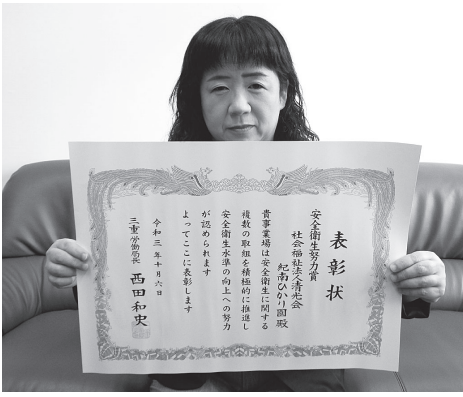 表彰状
安全衛生努力賞
社会福祉法人清光会
紀南ひかり園殿
貴事業場は安全衛生に関する
複数の取組を積極的に推進し
安全衛生水準の向上への努力
が認められます
よってここに表彰します
令和三年十月六日
三重労働局長
西田和史